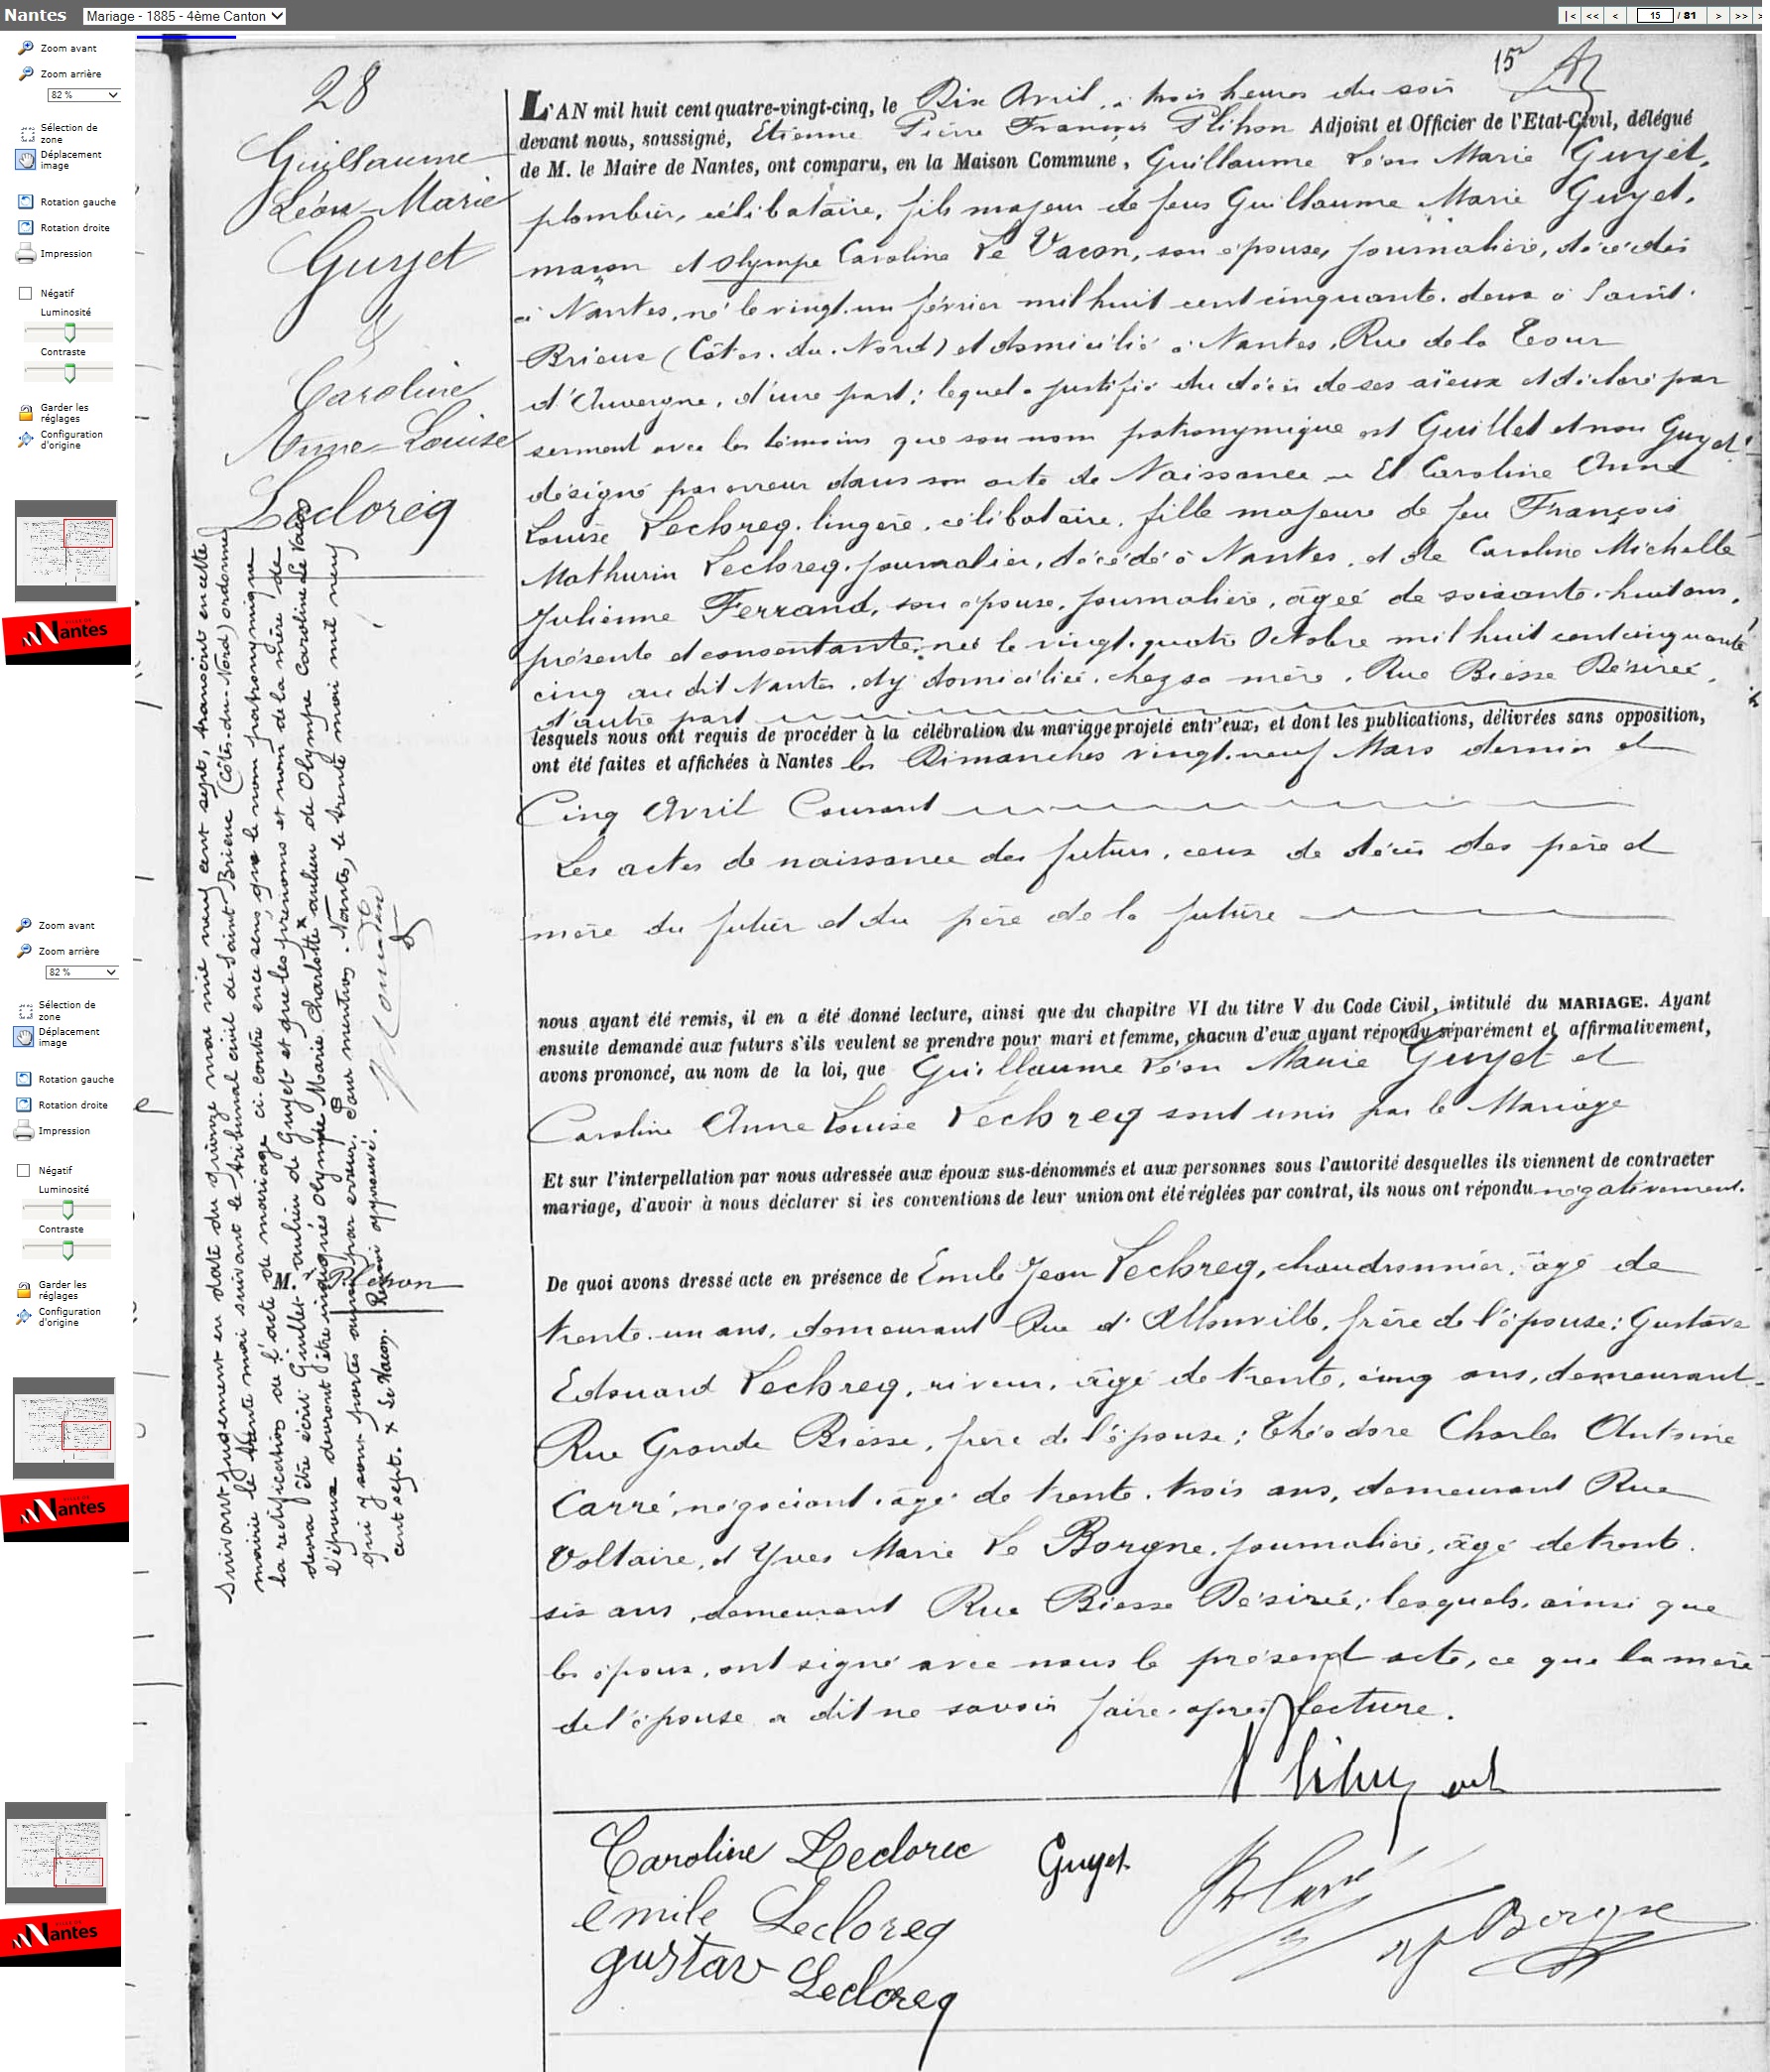 Nantes
Mariage - 1885 - 4ème Canton
|< << < 15 / 81 > >> >
Zoom avant
Zoom arrière
82 %
Sélection de
zone
Déplacement
image
Rotation gauche
Rotation droite
Impression
Négatif
Luminosité
Contraste
Garder les
réglages
Configuration
d'origine
Nantes
Zoom avant
Zoom arrière
82 %
Sélection de
zone
Déplacement
image
Rotation gauche
Rotation droite
Impression
Négatif
Luminosité
Contraste
Garder les
réglages
Configuration
d'origine
Nantes
Nantes
28
Guillaume
Léon-Marie
Guyet
&
Caroline
Anne-Louise
Lecloreq
M. Plihon
Suivant jugement en date du quinze mai mil neuf cent sept, transcrit en cette
mairie le trente mai suivant le tribunal civil de Saint Brieuc (Côtes-du-Nord) ordonne
la rectification de l'acte de mariage ci-contre en ce sens que le nom patronymique
devra être écrit Guillet au lieu de Guyet et que les prénoms et nom de la mère de
l'époux devront être indiqués Olympe Marie Charlotte x au lieu de Olympe Caroline Le Vacon
qui y sont portés aussi par erreur. Pour mention. Nantes, le trente mai mil neuf
cent sept. x Le Vacon. Renvoi approuvé.
15
L'AN mil huit cent quatre-vingt-cinq, le Dix Avril, à trois heures du soir
devant nous, soussigné, Etienne Pierre François Plihon Adjoint et Officier de l'Etat-Civil, délégué
de M. le Maire de Nantes, ont comparu, en la Maison Commune, Guillaume Léon Marie Guyet,
plombier, célibataire, fils majeur de feus Guillaume Marie Guyet,
maçon et Olympe Caroline Le Vacon, son épouse, journalière, décédés
à Nantes, né le vingt-un février mil huit cent cinquante-deux à Saint-
Brieuc (Côtes-du-Nord) et domicilié à Nantes, Rue de la Tour
d'Auvergne, d'une part; lequel a justifié du décès de ses aïeux et déclaré par
serment avec les témoins que son nom patronymique est Guillet et non Guyet
désigné par erreur dans son acte de Naissance - Et Caroline Anne
Louise Lecloreq, lingère, célibataire, fille majeure de feu François
Mathurin Lecloreq, journalier, décédé à Nantes, et de Caroline Michelle
Julienne Ferrand, son épouse, journalière, âgée de soixante-huit ans,
présente et consentante, née le vingt-quatre Octobre mil huit cent cinquante
cinq au dit Nantes, d'y domiciliée, chez sa mère, Rue Biesse Désirée,
d'autre part
lesquels nous ont requis de procéder à la célébration du mariage projeté entr'eux, et dont les publications, délivrées sans opposition,
ont été faites et affichées à Nantes les Dimanches vingt-neuf Mars dernier et
Cinq Avril Courant
Les actes de naissance des futurs, ceux de décès des père et
mère du futur et du père de la future
nous ayant été remis, il en a été donné lecture, ainsi que du chapitre VI du titre V du Code Civil, intitulé du MARIAGE. Ayant
ensuite demandé aux futurs s'ils veulent se prendre pour mari et femme, chacun d'eux ayant répondu séparément et affirmativement,
avons prononcé, au nom de la loi, que Guillaume Léon Marie Guyet et
Caroline Anne Louise Lecloreq sont unis par le Mariage
Et sur l'interpellation par nous adressée aux époux sus-dénommés et aux personnes sous l'autorité desquelles ils viennent de contracter
mariage, d'avoir à nous déclarer si les conventions de leur union ont été réglées par contrat, ils nous ont répondu négativement.
De quoi avons dressé acte en présence de Emile Jean Lecloreq, chaudronnier, âgé de
trente-un ans, demeurant Rue d'Allonville, frère de l'épouse; Gustave
Edouard Lecloreq, riveur, âgé de trente-cinq ans, demeurant
Rue Grande Biesse, frère de l'épouse; Théodore Charles Antoine
Carré, négociant, âgé de trente-trois ans, demeurant Rue
Voltaire, et Yves Marie Le Borgne, journalier, âgé de trente-
six ans, demeurant Rue Biesse Désirée; lesquels, ainsi que
les époux, ont signé avec nous le présent acte, ce que la mère
de l'épouse a dit ne savoir faire, après lecture.
Plihon adt
Caroline Leclorec
Guyet
emile Lecloreq
gustav Lecloreq
Borgne